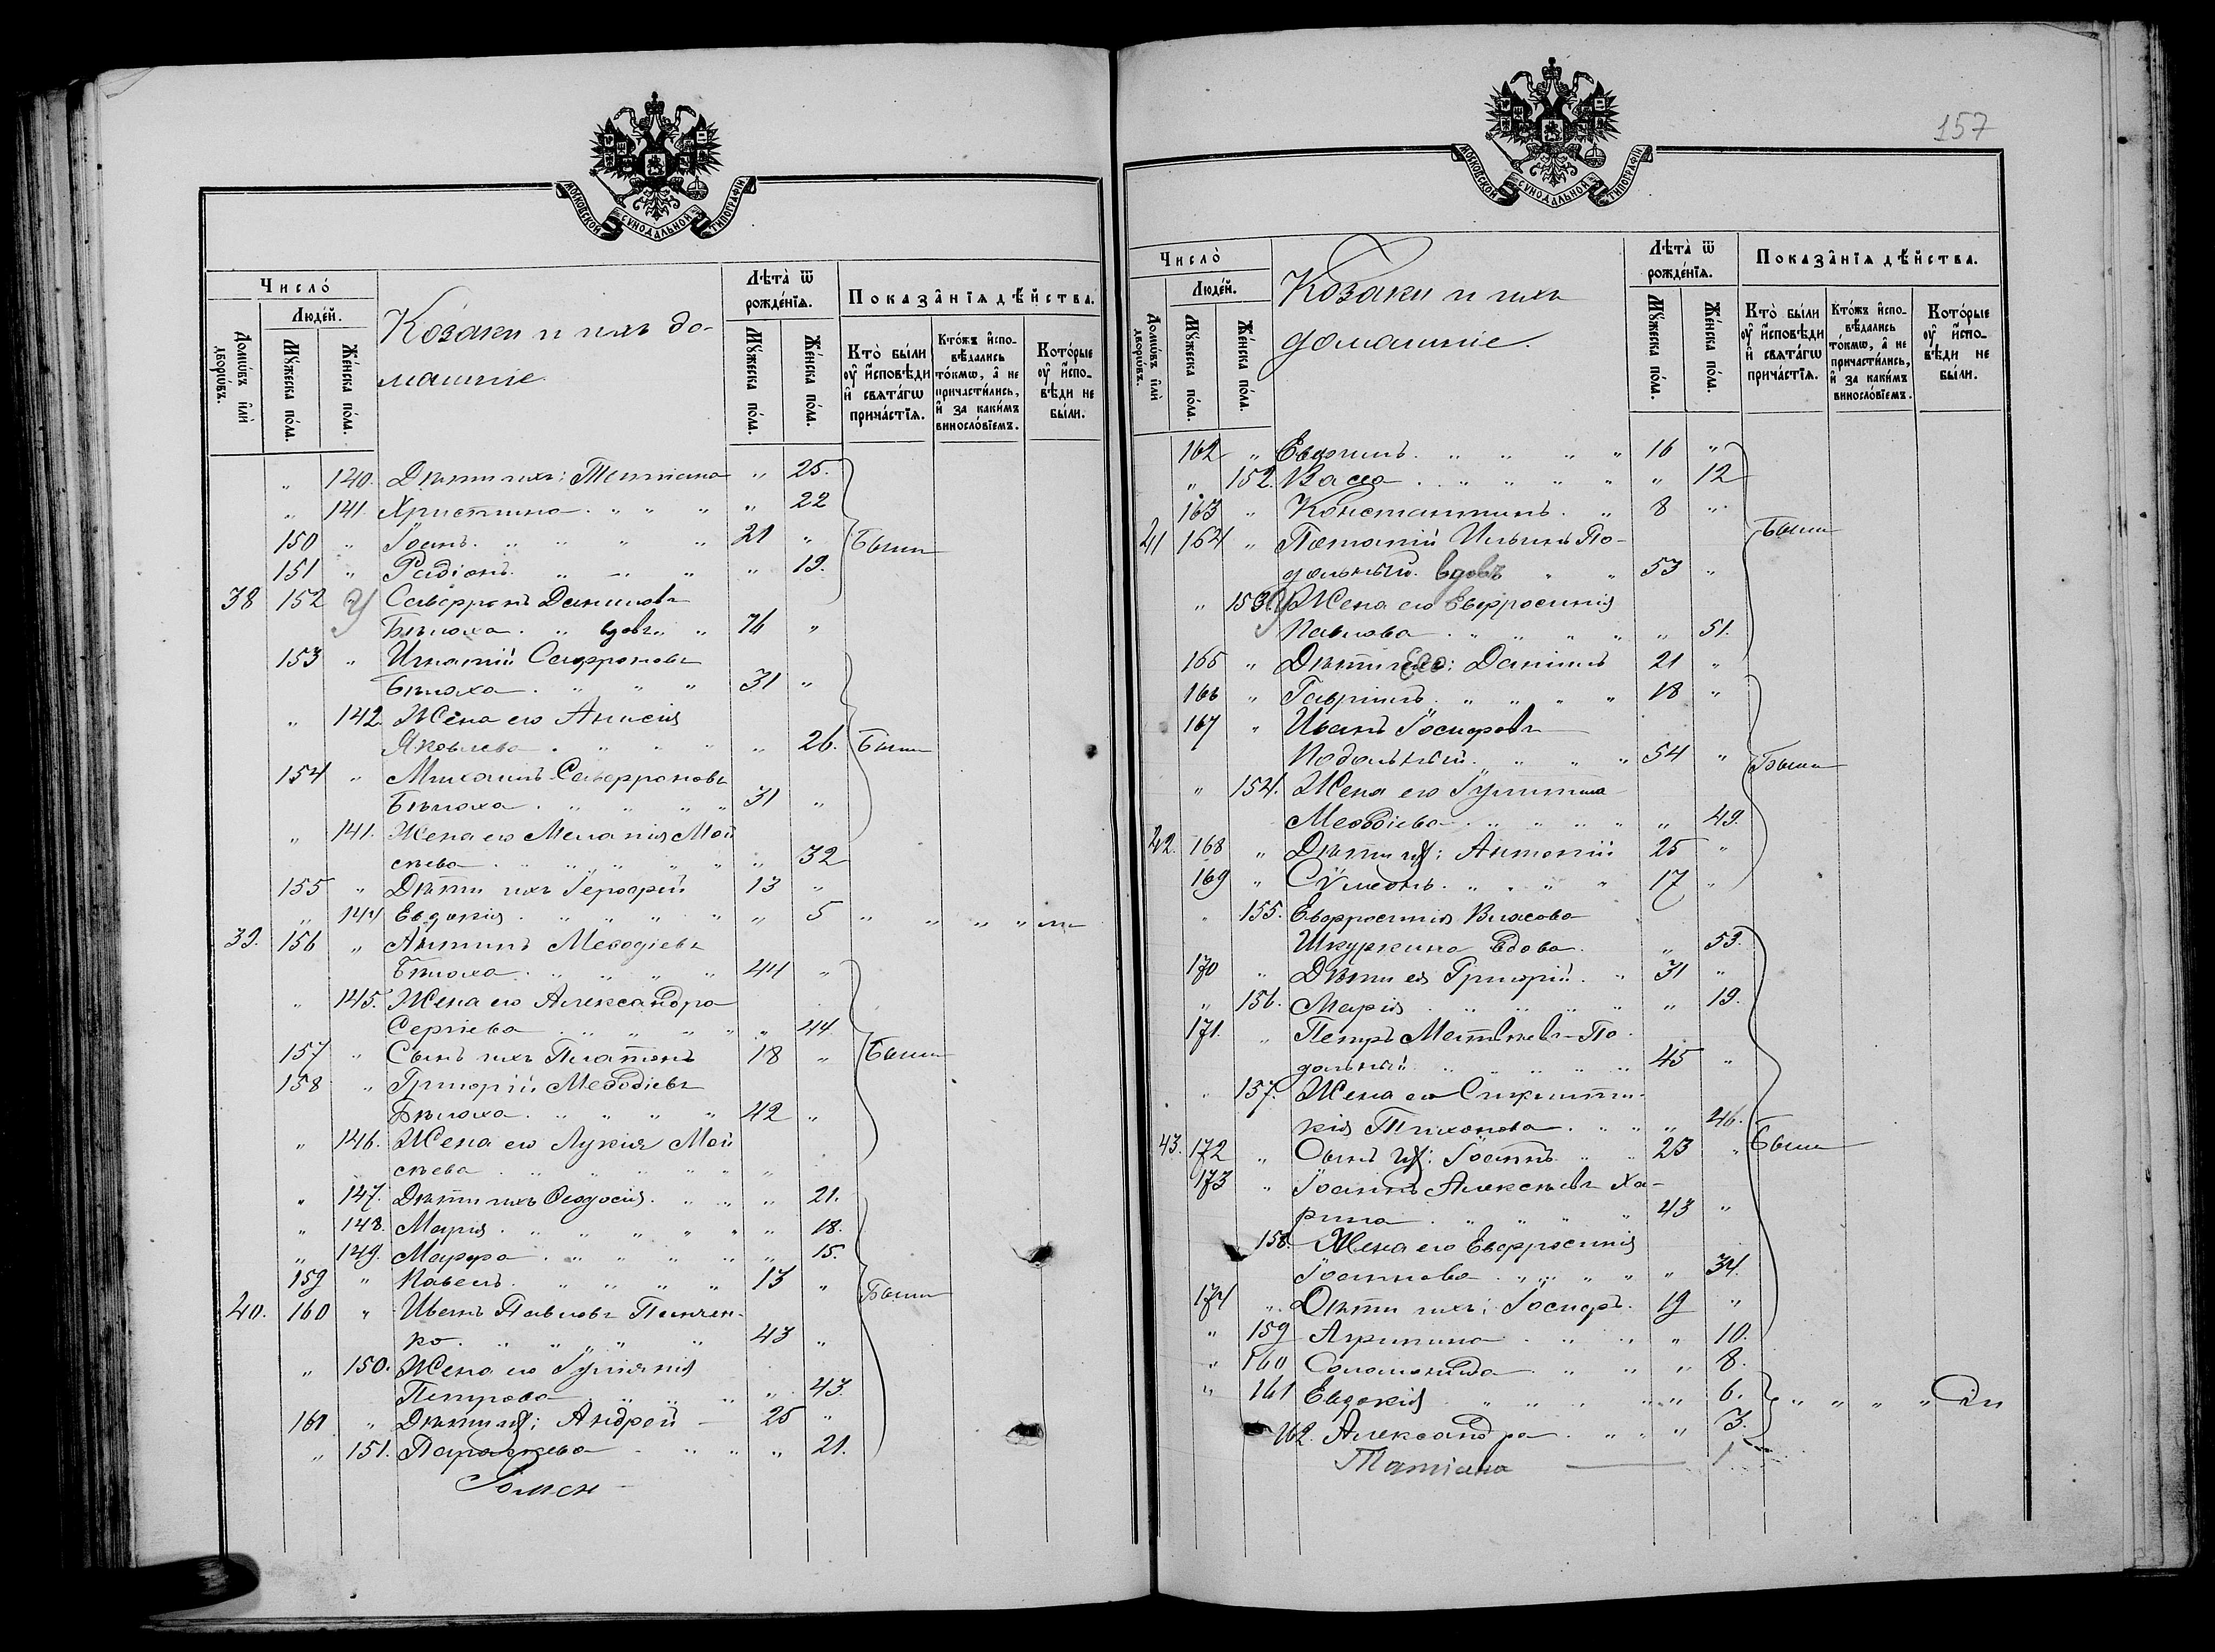 МОСКОВСКОЙ СѴНОДАЛЬНОЙ ТИПОГРАФІИ
Число̀
Людей.
Домѡвъ или дворѡвъ.
Мꙋжеска пола.
Женска пола.
Козаки и ихъ до-
машніе
Лѣта ѿ рожденїѧ.
Мꙋжеска пола.
Женска пола.
Показанїѧ дѣйства.
Кто были оу исповѣди и свѧтагѡ причастїѧ.
Ктожъ исповѣдались токмѡ, а не причастились, и за какимъ винословїемъ.
Которые оу исповѣди не были.
„ 140. Дѣти ихъ: Татіана „ 25.
„ 141 Христина „ „ „ „ 22
150 „ Іоанъ „ „ „ „ 21 „ Были
151 „ Радіонъ „ „ „ „ 19.
38 152 Савѳронъ Даниловъ
Бѣлоха „ вдовъ „ 76 „
153 „ Игнатій Сафроновъ
Бѣлоха „ „ „ 31 „
„ 142. Жена его Анисія
Яковлева „ „ „ „ 26. Были
154 „ Михаилъ Саверроновъ
Бѣлоха „ „ „ „ 31 „
„ 141. Жена его Меланія Мой
сѣева „ „ „ „ „ 32
155 „ Дѣти ихъ 13 „
„ 144 Евдокія „ „ „ „ „ 5 „ „ „ „
39. 156 „ Антипъ Меѳодіевъ
Бѣлоха „ „ „ „ 44 „
„ 145. Жена его Александра
Сергіева „ „ „ „ „ 44.
157 „ Сынъ ихъ Платонъ 18 „ Были
158 „ Григорій Меѳодіевъ
Бѣлоха „ „ „ „ 42 „
„ 146. Жена его Лукія Мой
сѣева „ „ „ „ „
„ 147. Дѣти ихъ Ѳеодосія „ „ „ 21.
„ 148. Марія „ „ „ „ „ 18.
„ 149. Марѳа „ „ „ „ „ 15.
159 „ Павелъ „ „ „ „ 13 „ Были
40. 160 „ Иванъ Павловъ Панчен-
ко „ „ „ „ 43 „
„ 150. Жена его Іуліанія
Петрова „ „ „ „ 43.
161 „ Дѣти их: Андрей 25 „
„ 151. Параскева „ „ „ 21.
157
МОСКОВСКОЙ СѴНОДАЛЬНОЙ ТИПОГРАФІИ
Число̀
Людей.
Домѡвъ или дворѡвъ.
Мꙋжеска пола.
Женска пола.
Козаки и ихъ
домашніе.
Лѣта ѿ рожденїѧ.
Мꙋжеска пола.
Женска пола.
Показанїѧ дѣйства.
Кто были оу исповѣди и свѧтагѡ причастїѧ.
Ктожъ исповѣдались токмѡ, а не причастились, и за какимъ винословїемъ.
Которые оу исповѣди не были.
162 „ Евфимъ „ „ „ „ 16 „
„ 152. Васса „ „ „ „ „ 12
163 „ Константинъ „ 8 „
41 164 „ Потапій Ильинъ По- Были
дольный. вдовъ „ „ 53 „
„ 153. Жена его Евфросинія
Павлова „ „ „ „ „ 51.
165 „ Дѣти Его: Даніилъ 21 „
166 „ Гавріилъ „ „ „ „ 18 „
167 „ Иванъ Іосифовъ
Подольный „ „ „ 54 „ Были
„ 154. Жена его Іулитта
Меѳодіева „ „ „ „ „ 49.
42. 168 „ Дѣти их: Антоній 25 „
169 „ Сѵмеонъ „ „ „ „ 17 „
„ 155. Евфросинія Власова
Шкуркина вдова „ 53.
170 „ Дѣти ея Григорій „ 31 „
„ 156. Марія „ „ „ „ „ 19.
171. „ Петръ Матвѣевъ По-
дольный „ „ „ „ 45 „
„ 157. Жена его Синклити-
кія Тихонова „ „ „ 46.
43. 172 „ Сынъ их: Іоаннъ „ „ 23 „ Были
173 „ Іоаннъ Алексѣевъ Ха-
рина „ „ „ „ 43 „
158. Жена его Евфросинія
Іоаннова „ „ „ „ „ 34.
174 „ Дѣти ихъ: Іосифъ 19 „
„ 159 Агрипина „ „ „ „ 10.
„ 160 Соломонида „ „ „ 8.
„ 161 Евдокія „ „ „ „ „ 6. „ „ „ „
162. Александра „ „ „ 3.
Татіана — 1